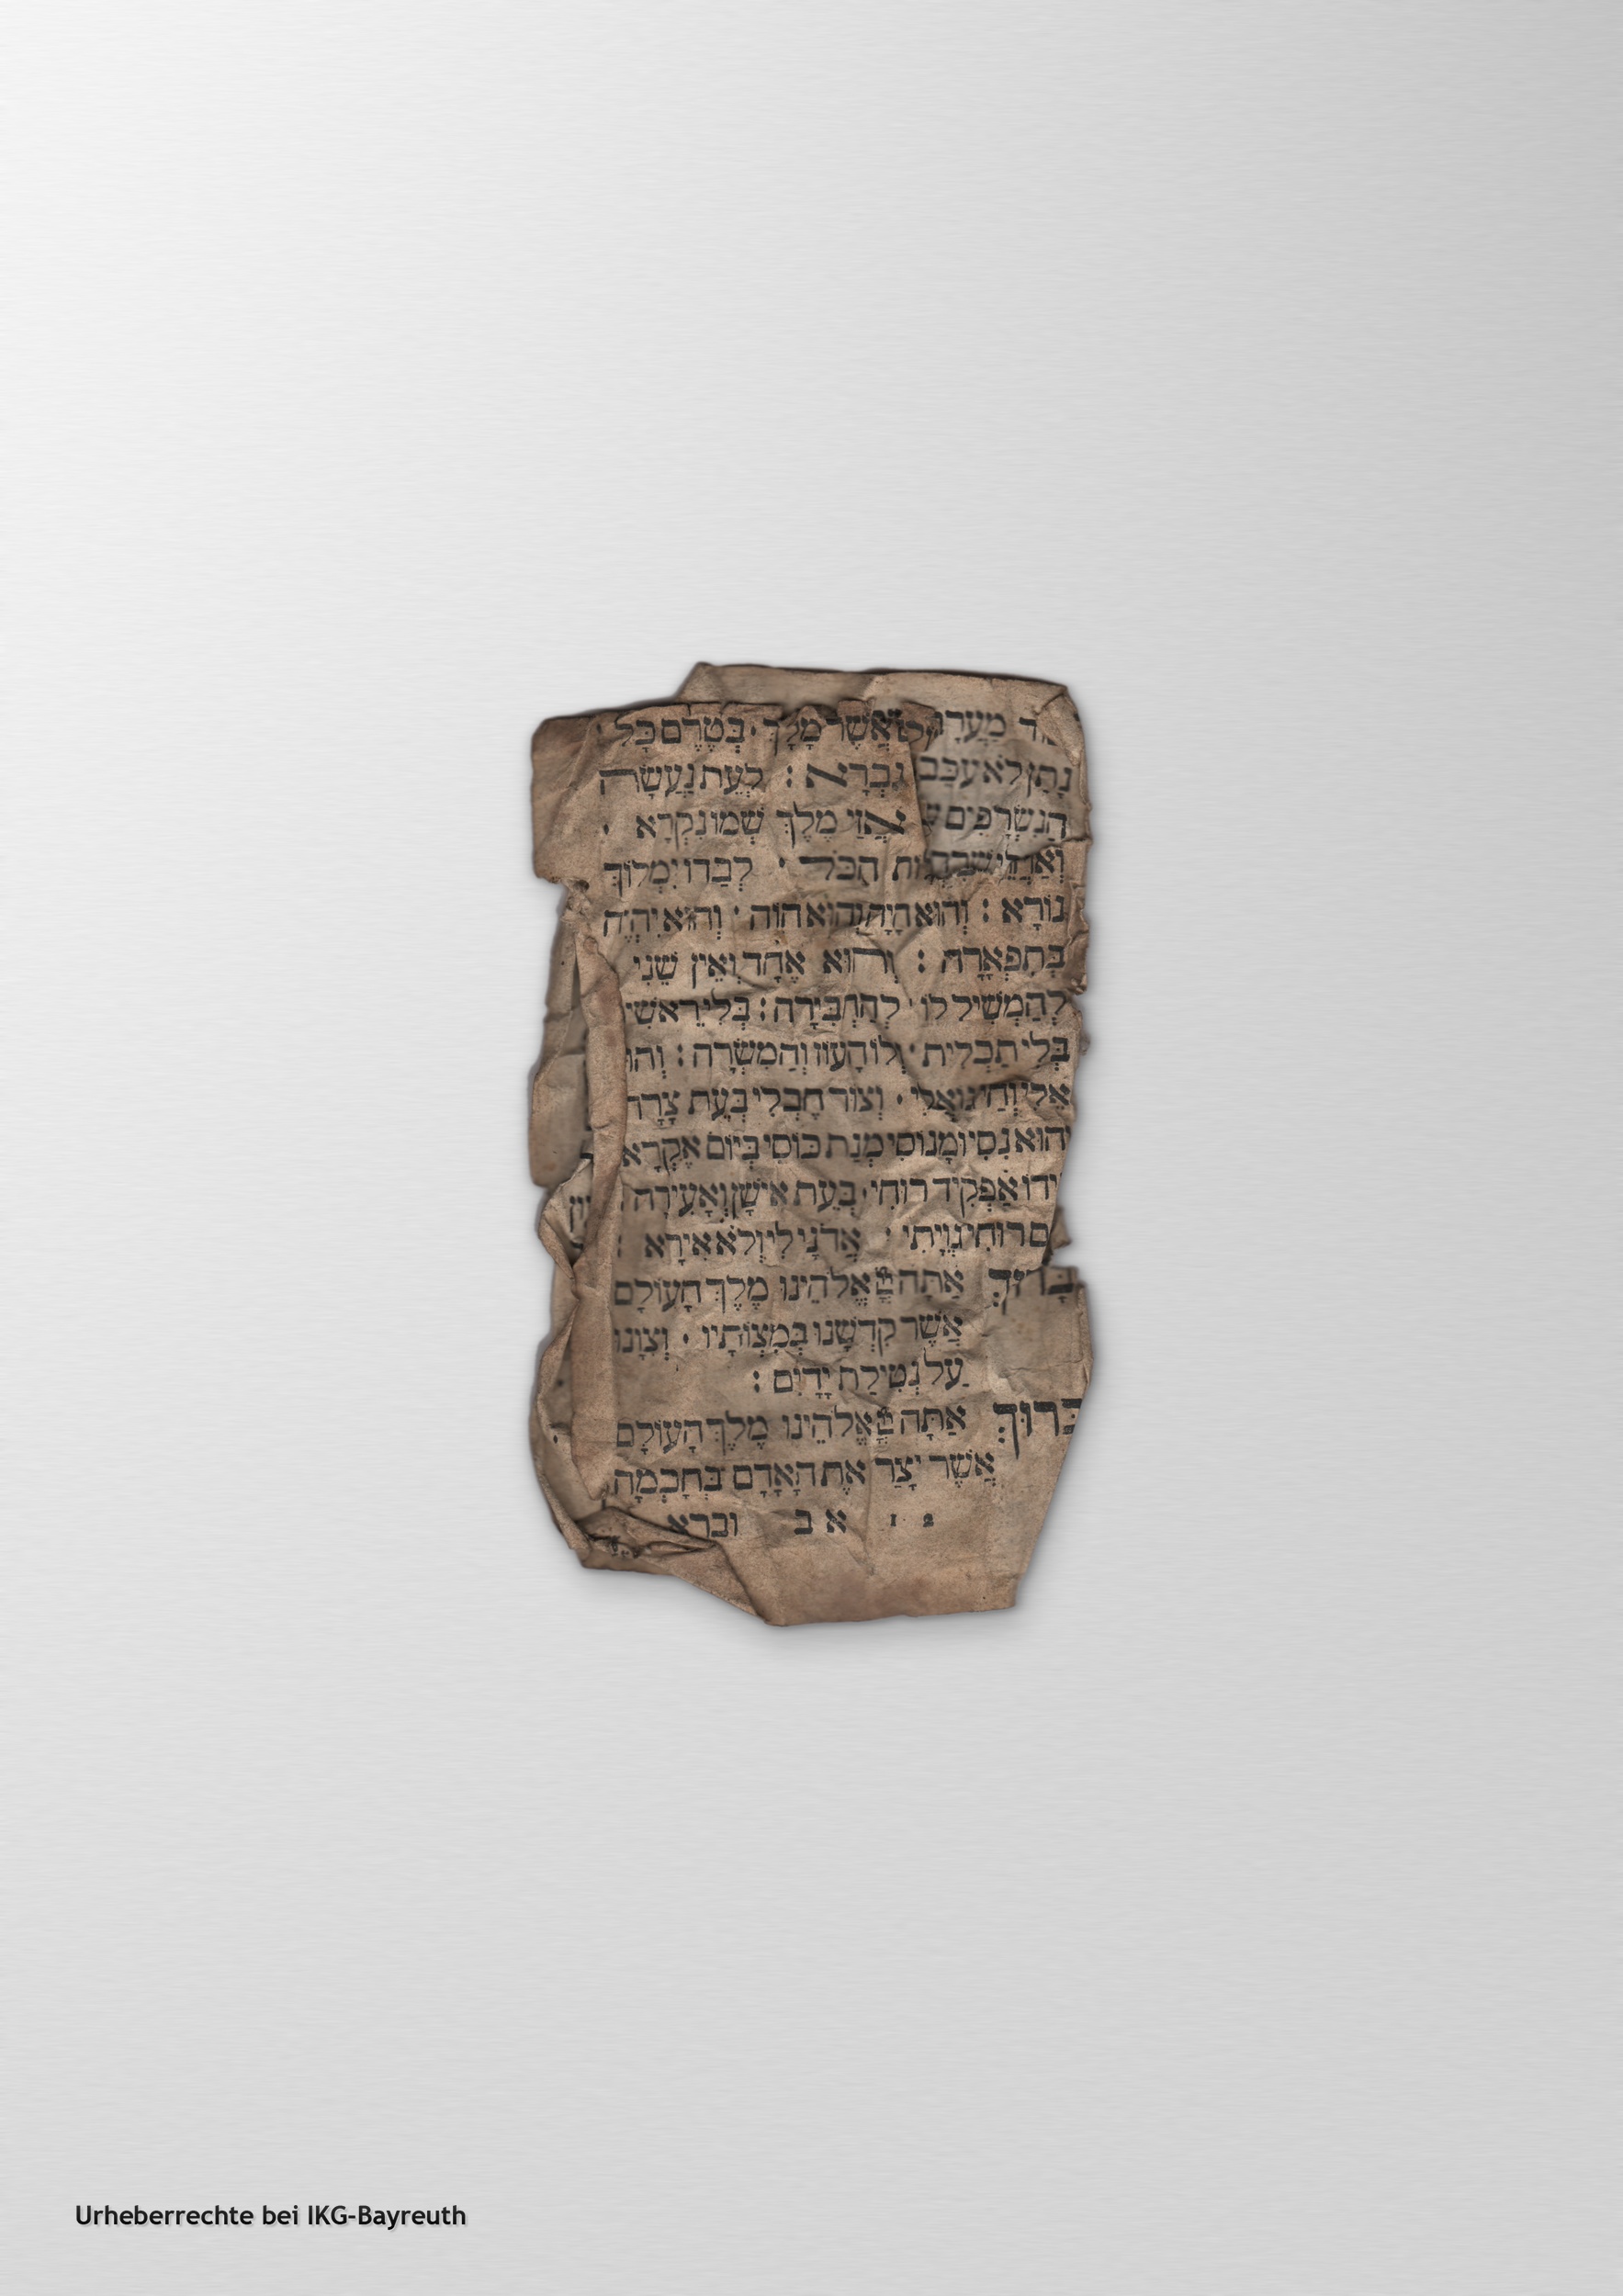 אֲשֶׁר מָלַךְ · בְּטֶרֶם כָּל
נִבְרָא : לְעֵת נַעֲשָׂה
אֲזַי מֶלֶךְ שְׁמוֹ נִקְרָא ·
הַכֹּל · לְבַדּוֹ יִמְלוֹךְ
נוֹרָא : וְהוּא הָיָה וְהוּא הוֹה · וְהוּא יִהְיֶה
בְּתִפְאָרָה : וְהוּא אֶחָד וְאֵין שֵׁנִי
לְהַמְשִׁיל לוֹ · לְהַחְבִּירָה : בְּלִי רֵאשִׁי
בְּלִי תַכְלִית · וְלוֹ הָעוֹז וְהַמִּשְׂרָה : וְהוּ
אֵלִי וְחַי גּוֹאֲלִי · וְצוּר חֶבְלִי בְּעֵת צָרָה
וְהוּא נִסִּי וּמָנוֹסִי מְנָת כּוֹסִי בְּיוֹם אֶקְרָא
אַפְקִיד רוּחִי · בְּעֵת אִישָׁן וְאָעִירָה
רוּחִי גְּוִיָּתִי · אֲדֹנָי לִי וְלֹא אִירָא :
בָּרוּךְ אַתָּה יְיָ אֱלֹהֵינוּ מֶלֶךְ הָעוֹלָם
אֲשֶׁר קִדְּשָׁנוּ בְּמִצְוֹתָיו · וְצִוָּנוּ
עַל נְטִילַת יָדָיִם :
בָּרוּךְ אַתָּה יְיָ אֱלֹהֵינוּ מֶלֶךְ הָעוֹלָם
אֲשֶׁר יָצַר אֶת הָאָדָם בְּחָכְמָה
12 א ב וברא
Urheberrechte bei IKG-Bayreuth